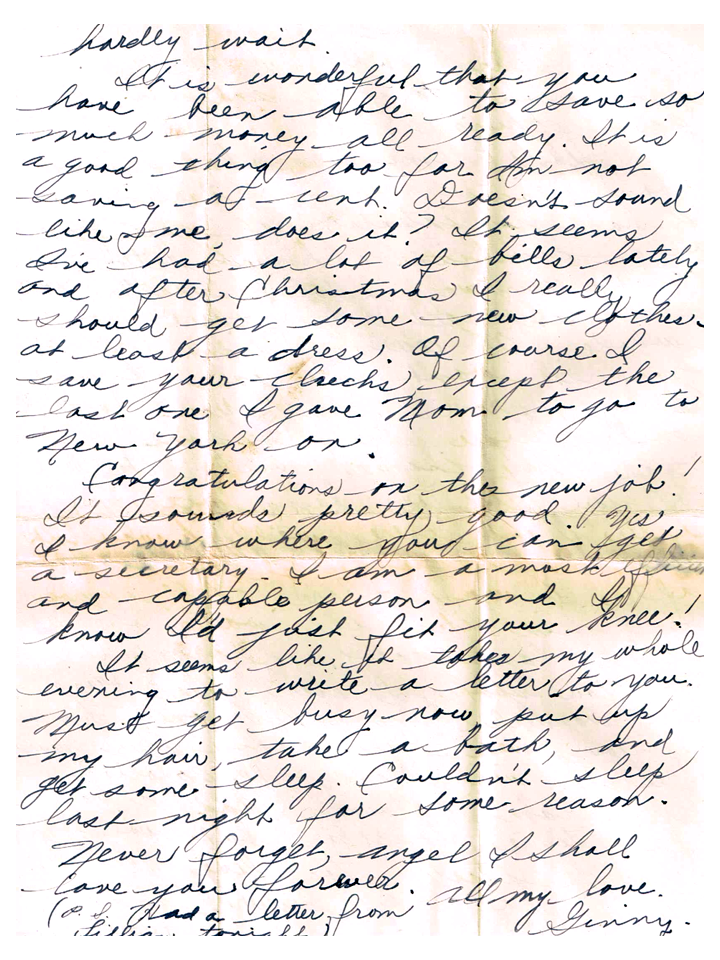 hardly wait.
It is wonderful that you
have been able to save so
much money all ready. It is
a good thing too for Am not
saving a cent. Doesn't sound
like me, does it? It seems
I've had a lot of bills lately
and after Christmas I really
should get some new clothes.
at least a dress. Of course I
save your checks, except the
last one I gave Mom to go to
New York on.
Congratulations on the new job!
It sounds pretty good. Yes
I know where you can get
a secretary. I am a most
and capable person and I
know I'd just fit your knee!
It seems like it takes my whole
evening to write a letter to you.
Must get busy now, put up
my hair, take a bath, and
get some sleep. Couldn't sleep
last night for some reason.
Never forget, angel I shall
love you forever. All my love.
(P.S. Had a letter from
Ginny.
Lillian tonight)